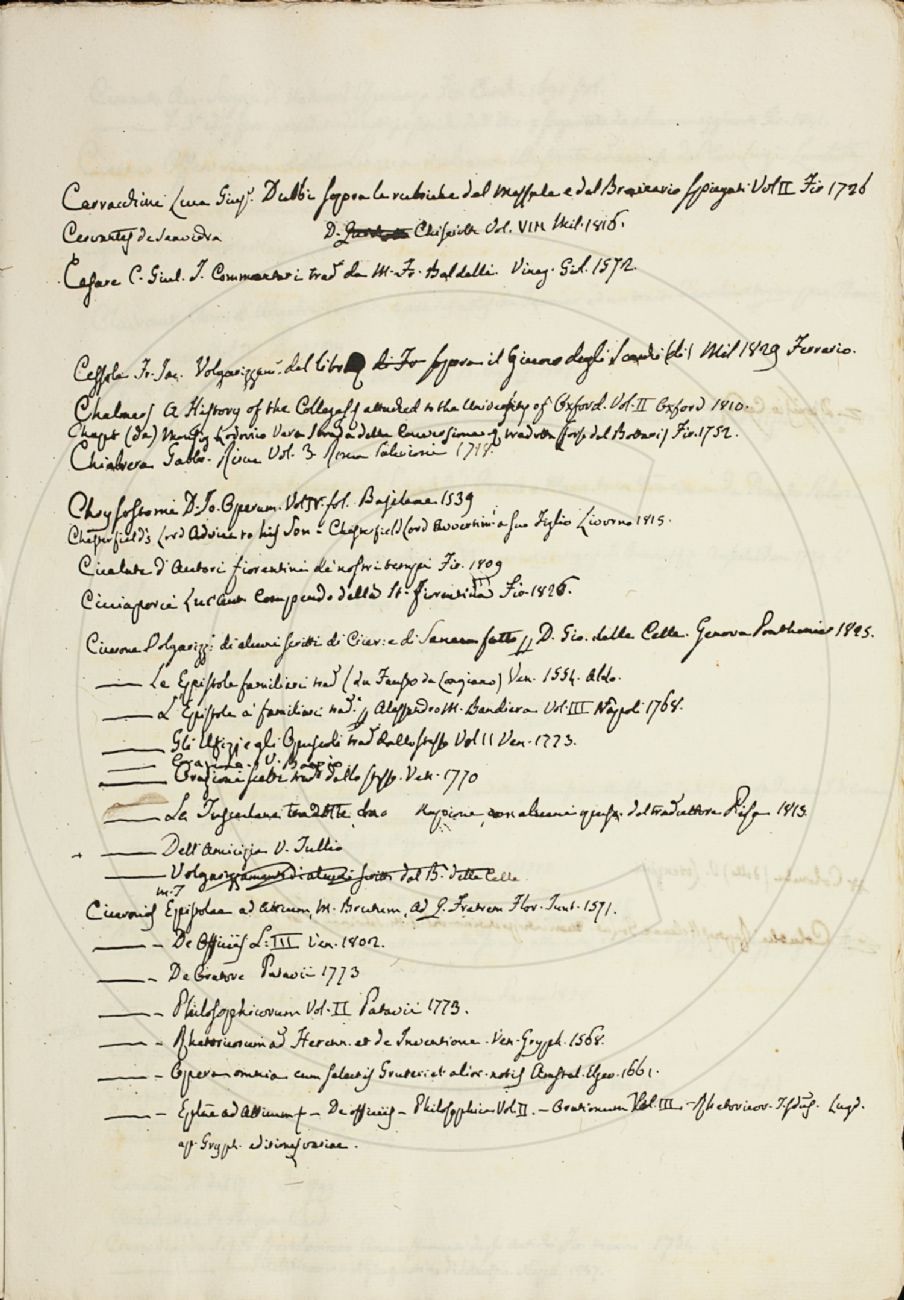 Cerracchini Luca Gius. Dubbi sopra le rubriche del Messale e del Breviario spiegati Vol II Fir 1726
Cervantes de Saavedra D. Chisciotte Vol. VIII Mil. 1816.
Cesare C. Giul. I Commentari trad. da M. Fr. Baldelli. Vineg. Giol. 1572.
Cessole Fr. Jac. Volgarizzam. del libro di Fr sopra il Giuoco degli Scacchi (di) Mil 1829 Ferrario.
Chalmers A History of the Colleges attached to the University of Oxford. Vol. II Oxford 1810.
(da) Monsig Lodovico Vera della Conversione tradotta del Bottarij Fir. 1752.
Chiabrera Gabb. Rime Vol. 3. Roma Salvioni 1718.
Chrysostomi D. Jo. Operum. Vol IV. fol. Basileae 1539
Chesterfield's Lord Advice to his Son - Chesterfield Lord Avvertim. a suo Figlio Livorno 1815.
Cicalate d'Autori fiorentini de' nostri tempi Fir. 1809
Cicciaporci Luc'Ant. Compendo della St. fiorentina Fir 1826.
Cicerone Volgarizz. di alcuni scritti di Cicer: e di Seneca fatto D. Gio. delle Celle. Genova Ponthenier 1825.
—— Le Epistole familiari trad. (da Fausto da Longiano) Ven. 1554. Aldo.
—— L'Epistole a' familiari trad. Alessandro M. Bandiera Vol. III Napoli 1768.
—— Gli Ufizj e gli Opuscoli trad dallo stesso Vol II Ven. 1773.
—— V.
—— Orazioni scelte trad. dallo stesso. Ven. 1770
—— Le Tusculane tradotte con alcune del traduttore Pisa 1813.
—— Dell'Amicizia V. Tullio
—— Volgarizzamento di alcuni scritti del B. delle Celle
m. T
Ciceronis Epistolae ad Atticum, M. Brutum, ad Q. Fratrem Flor. Junt. 1571.
—— - De Officiis L. III Ven. 1802.
—— - De Oratore Patavii 1773
—— - Philosophicorum Vol. II Patavii 1773.
—— - Rhetoricorum ad Herenn. et de Inventione. Ven. Gryph. 1568.
—— - Opera omnia cum selectis Gruteri et alior. notis Amstel. Elzev. 1661.
—— - Eplae ad Atticum - De officiis - Philosophica Vol. II. - Orationum Vol. III. - Rhetoricor. Lugd.
ap. Gryph. variae.